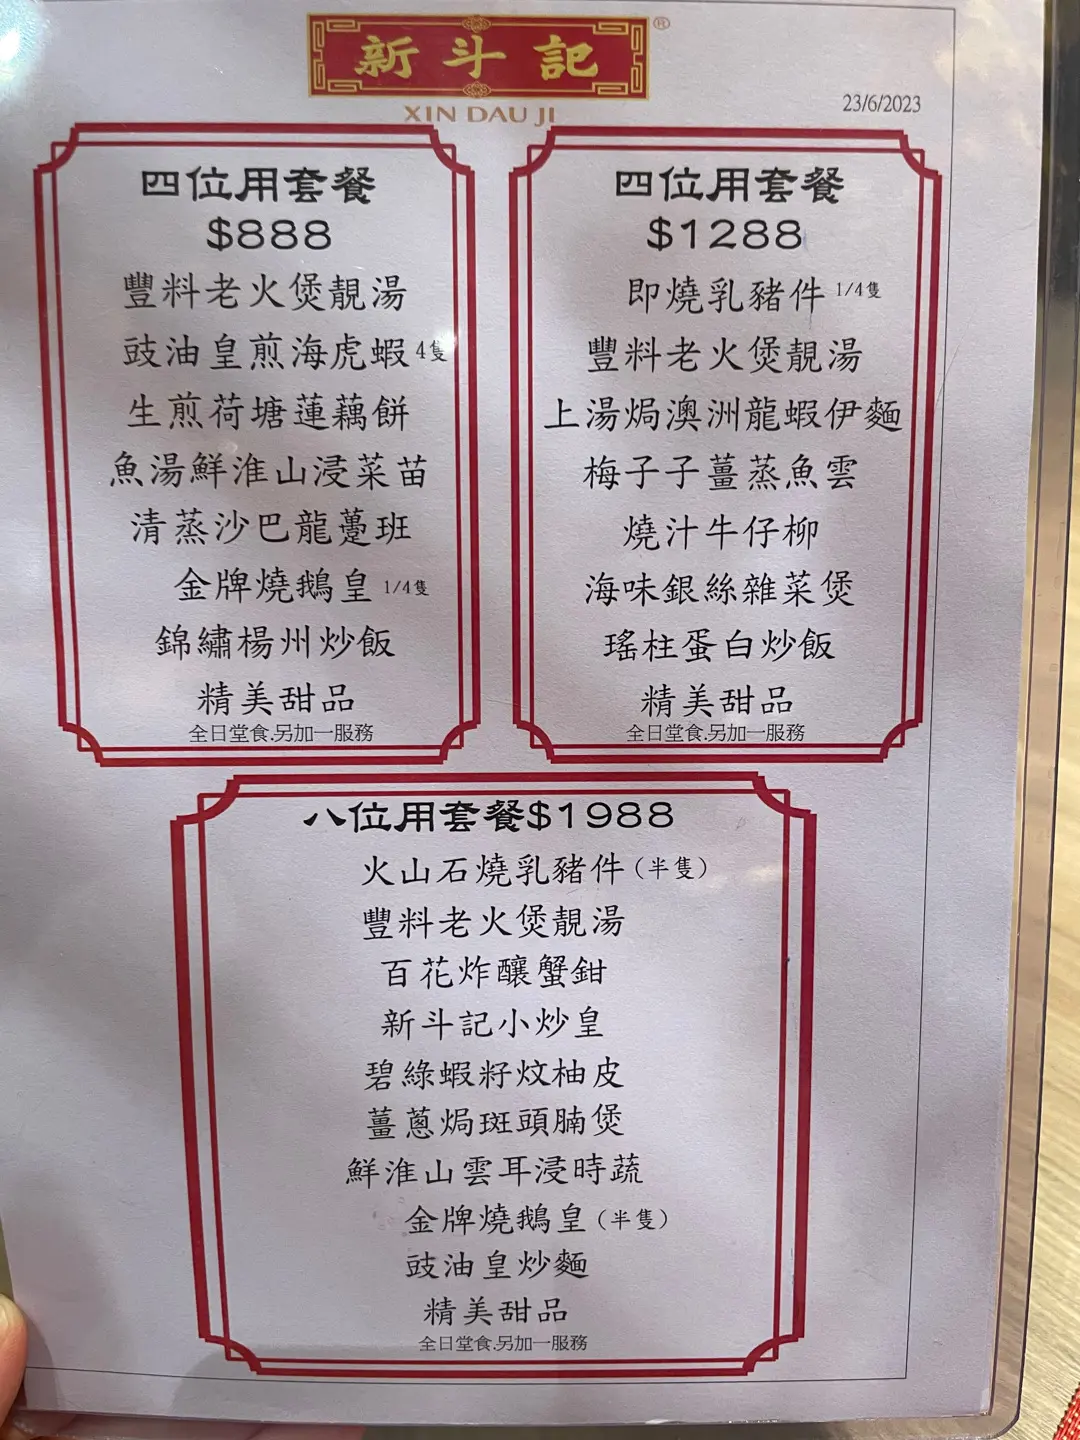 新斗記
®
XIN DAU JI
23/6/2023
四位用套餐
$888
豐料老火煲靚湯
豉油皇煎海虎蝦 4隻
生煎荷塘蓮藕餅
魚湯鮮淮山浸菜苗
清蒸沙巴龍躉班
金牌燒鵝皇 1/4隻
錦繡楊州炒飯
精美甜品
全日堂食.另加一服務
四位用套餐
$1288
即燒乳豬件 1/4隻
豐料老火煲靚湯
上湯焗澳洲龍蝦伊麵
梅子子薑蒸魚雲
燒汁牛仔柳
海味銀絲雜菜煲
瑤柱蛋白炒飯
精美甜品
全日堂食.另加一服務
八位用套餐$1988
火山石燒乳豬件（半隻）
豐料老火煲靚湯
百花炸釀蟹鉗
新斗記小炒皇
碧綠蝦籽炆柚皮
薑蔥焗斑頭腩煲
鮮淮山雲耳浸時蔬
金牌燒鵝皇（半隻）
豉油皇炒麵
精美甜品
全日堂食.另加一服務